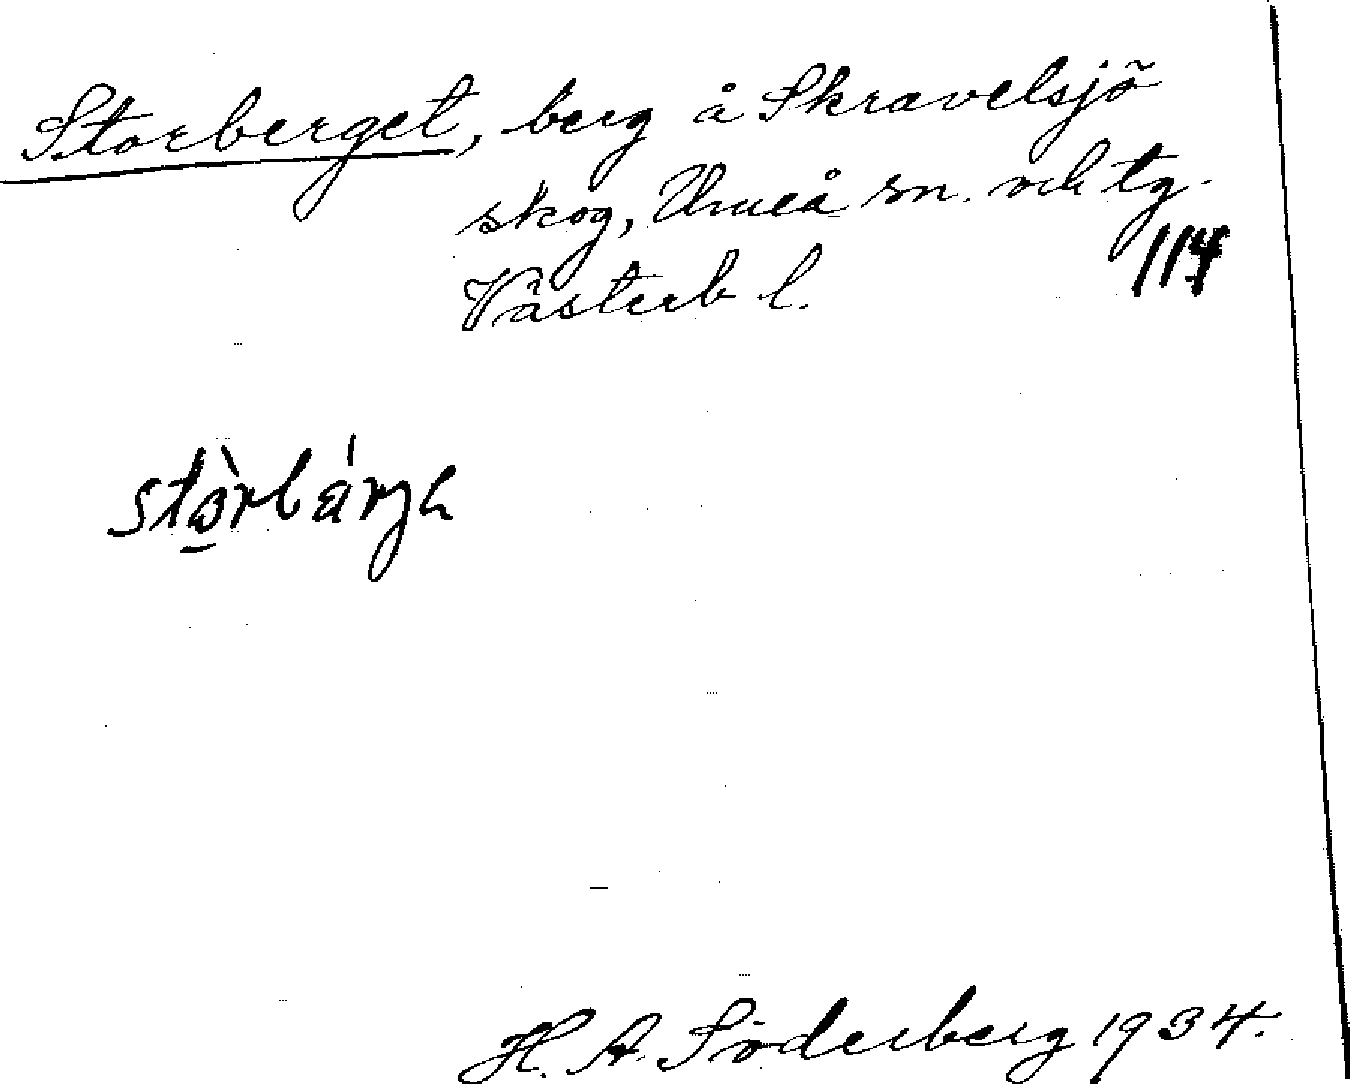 Storberget, berg å Skravelsjö
skog, Umeå sn. och tg.
Västerb l.
114
H. A. Söderberg 1934.